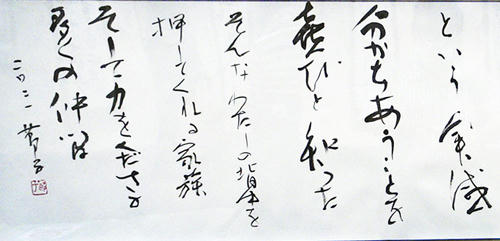 という実感
分かちあうことを
喜びと知った
そんなわたしの背中を
押してくれる家族
そして力をくださる
多くの仲間
二〇二一